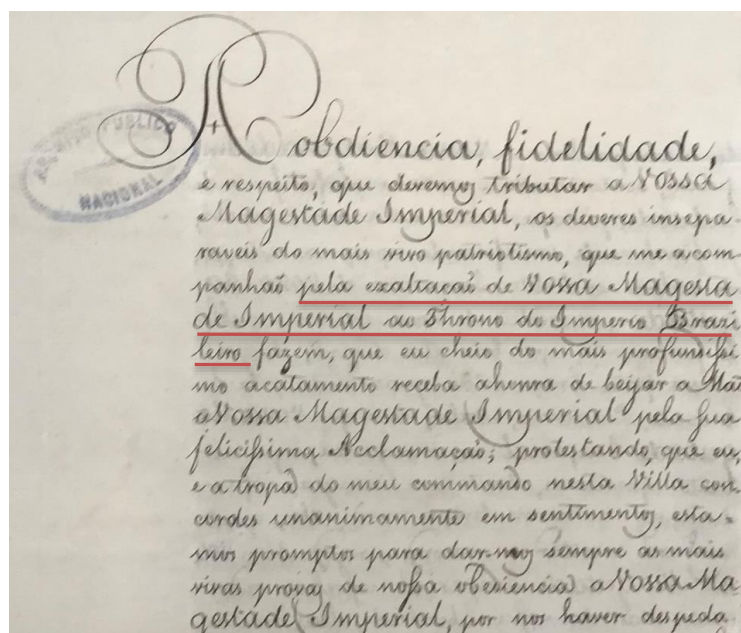 ARQUIVO PUBLICO
NACIONAL
A obdiencia, fidelidade,
e respeito, que devemos tributar a Vossa
Magestade Imperial, os deveres insepa-
raveis do mais vivo patriotismo, que me acom
panhaõ pela exaltaçaõ de Vossa Magesta
de Imperial ao Throno do Imperio Brazi
leiro fazem, que eu cheio do mais profundissi
mo acatamento receba ahonra de beijar a Maõ
aVossa Magestade Imperial pela sua
felicissima Acclamaçaõ; protestando, que eu,
e a tropa do meu commando nesta Villa con
cordes unanimamente em sentimentos, esta-
mos promptos para dar-mos sempre as mais
vivas provas de nossa obediencia a Vossa Ma
gestade Imperial, por nos haver despeda